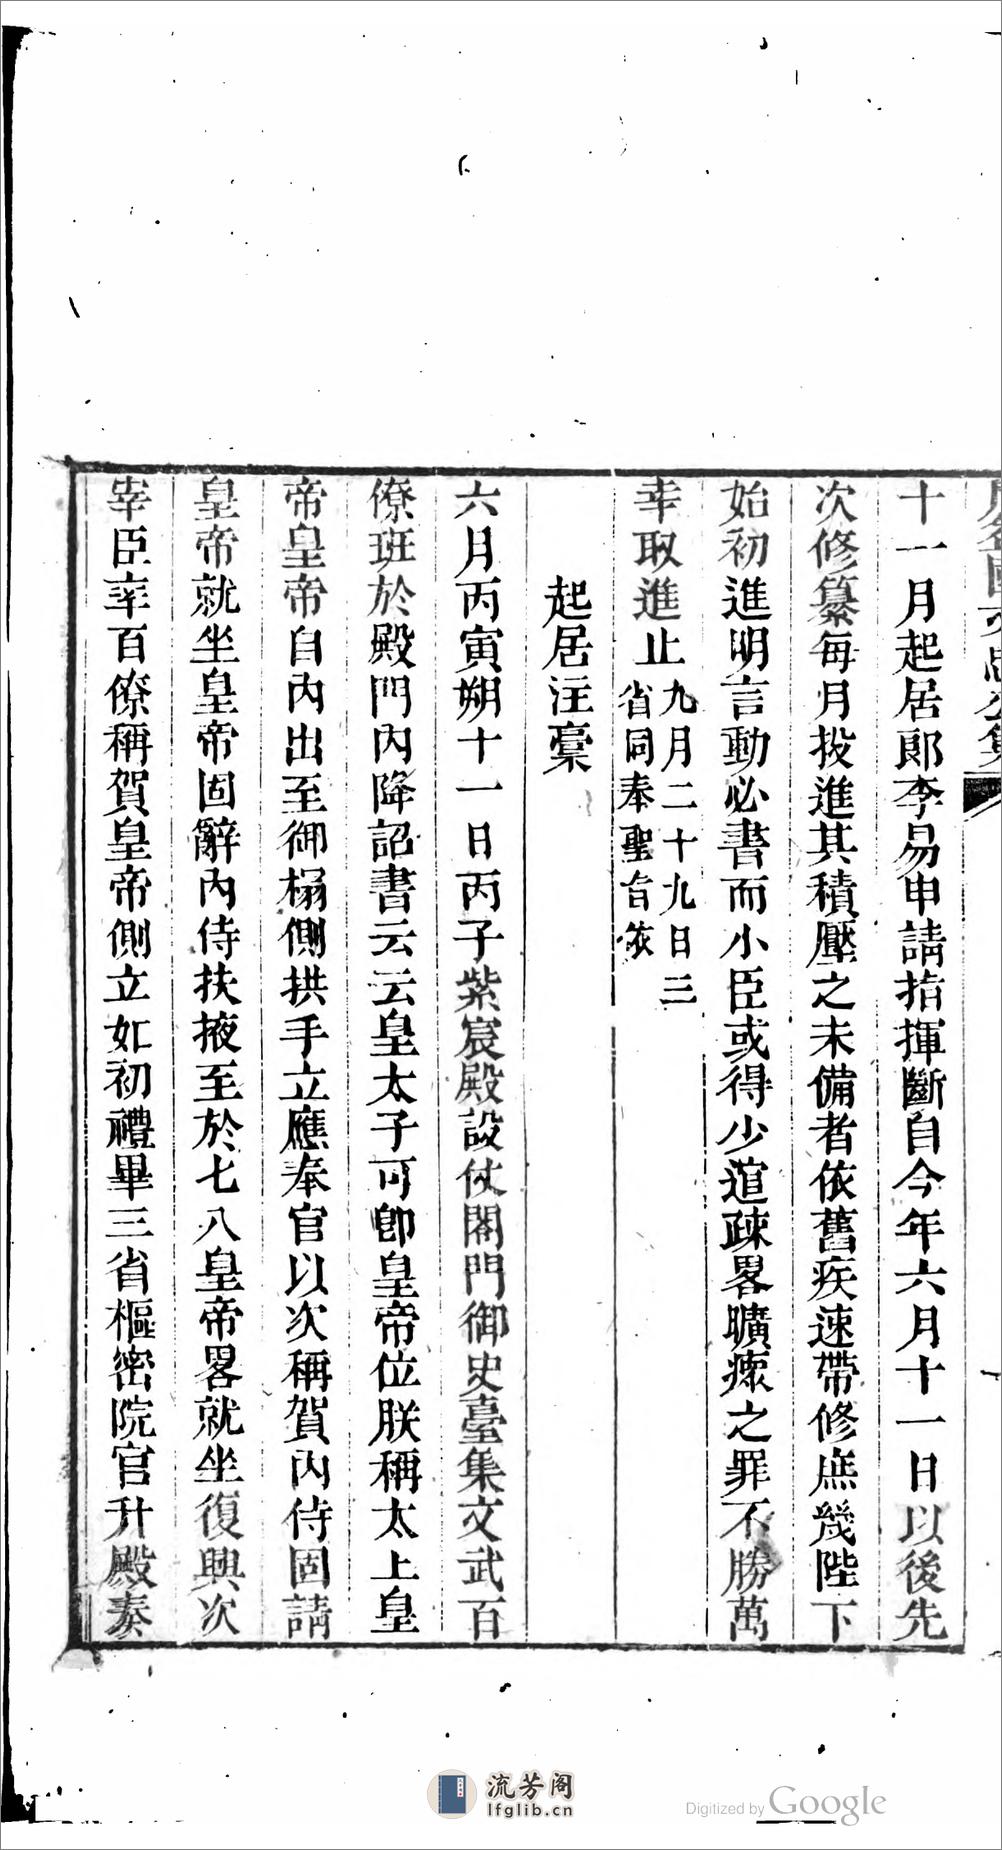 周益國文忠公集
十一月起居郎李易申請指揮斷自今年六月十一日以後先
次修纂每月投進其積壓之未備者依舊疾速帶修庶幾陛下
始初進明言動必書而小臣或得少逭疎畧曠瘝之罪不勝萬
幸取進止九月二十九日三
省同奉聖旨依
起居注稾
六月丙寅朔十一日丙子紫宸殿設仗閤門御史臺集文武百
僚班於殿門內降詔書云云皇太子可卽皇帝位朕稱太上皇
帝皇帝自內出至御榻側拱手立應奉官以次稱賀內侍固請
皇帝就坐皇帝固辭內侍扶掖至於七八皇帝畧就坐復興次
宰臣率百僚稱賀皇帝側立如初禮畢三省樞密院官升殿奏
流芳阁
lfglib.cn
Digitized by Google